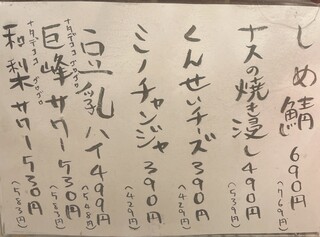 しめ鯖 690円
(769円)
ナスの焼き浸し 490円
(539円)
くんせいチーズ 390円
(429円)
ミノチャンジャ 390円
(429円)
豆乳ハイ 499円
(548円)
ナタデココ ゴロゴロ
巨峰サワー 530円
(583円)
ナタデココ ゴロゴロ
和梨サワー 530円
(583円)